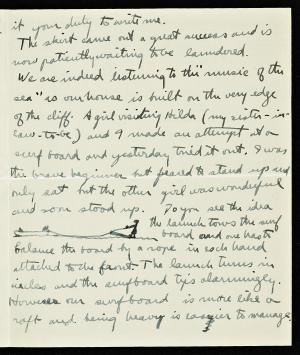 it your duty to write me.
The skirt came out a great success and is
now patiently waiting to be laundered.
We are indeed listening to the "music of the
sea" as our house is built on the very edge
of the cliff. A girl visiting Hilda (my sister-in-
law-to-be) and I made an attempt at a
surf board and yesterday tried it out. I was
the brave beginner but feared to stand up and
only sat but the other girl was wonderful
and soon stood up. Do you see the idea
the launch tows the surf
board and one has to
balance the board by a rope in each hand
attached to the front. The launch turns in
circles and the surfboard tips alarmingly.
However our surfboard is more like a
raft and being heavy is easier to manage.